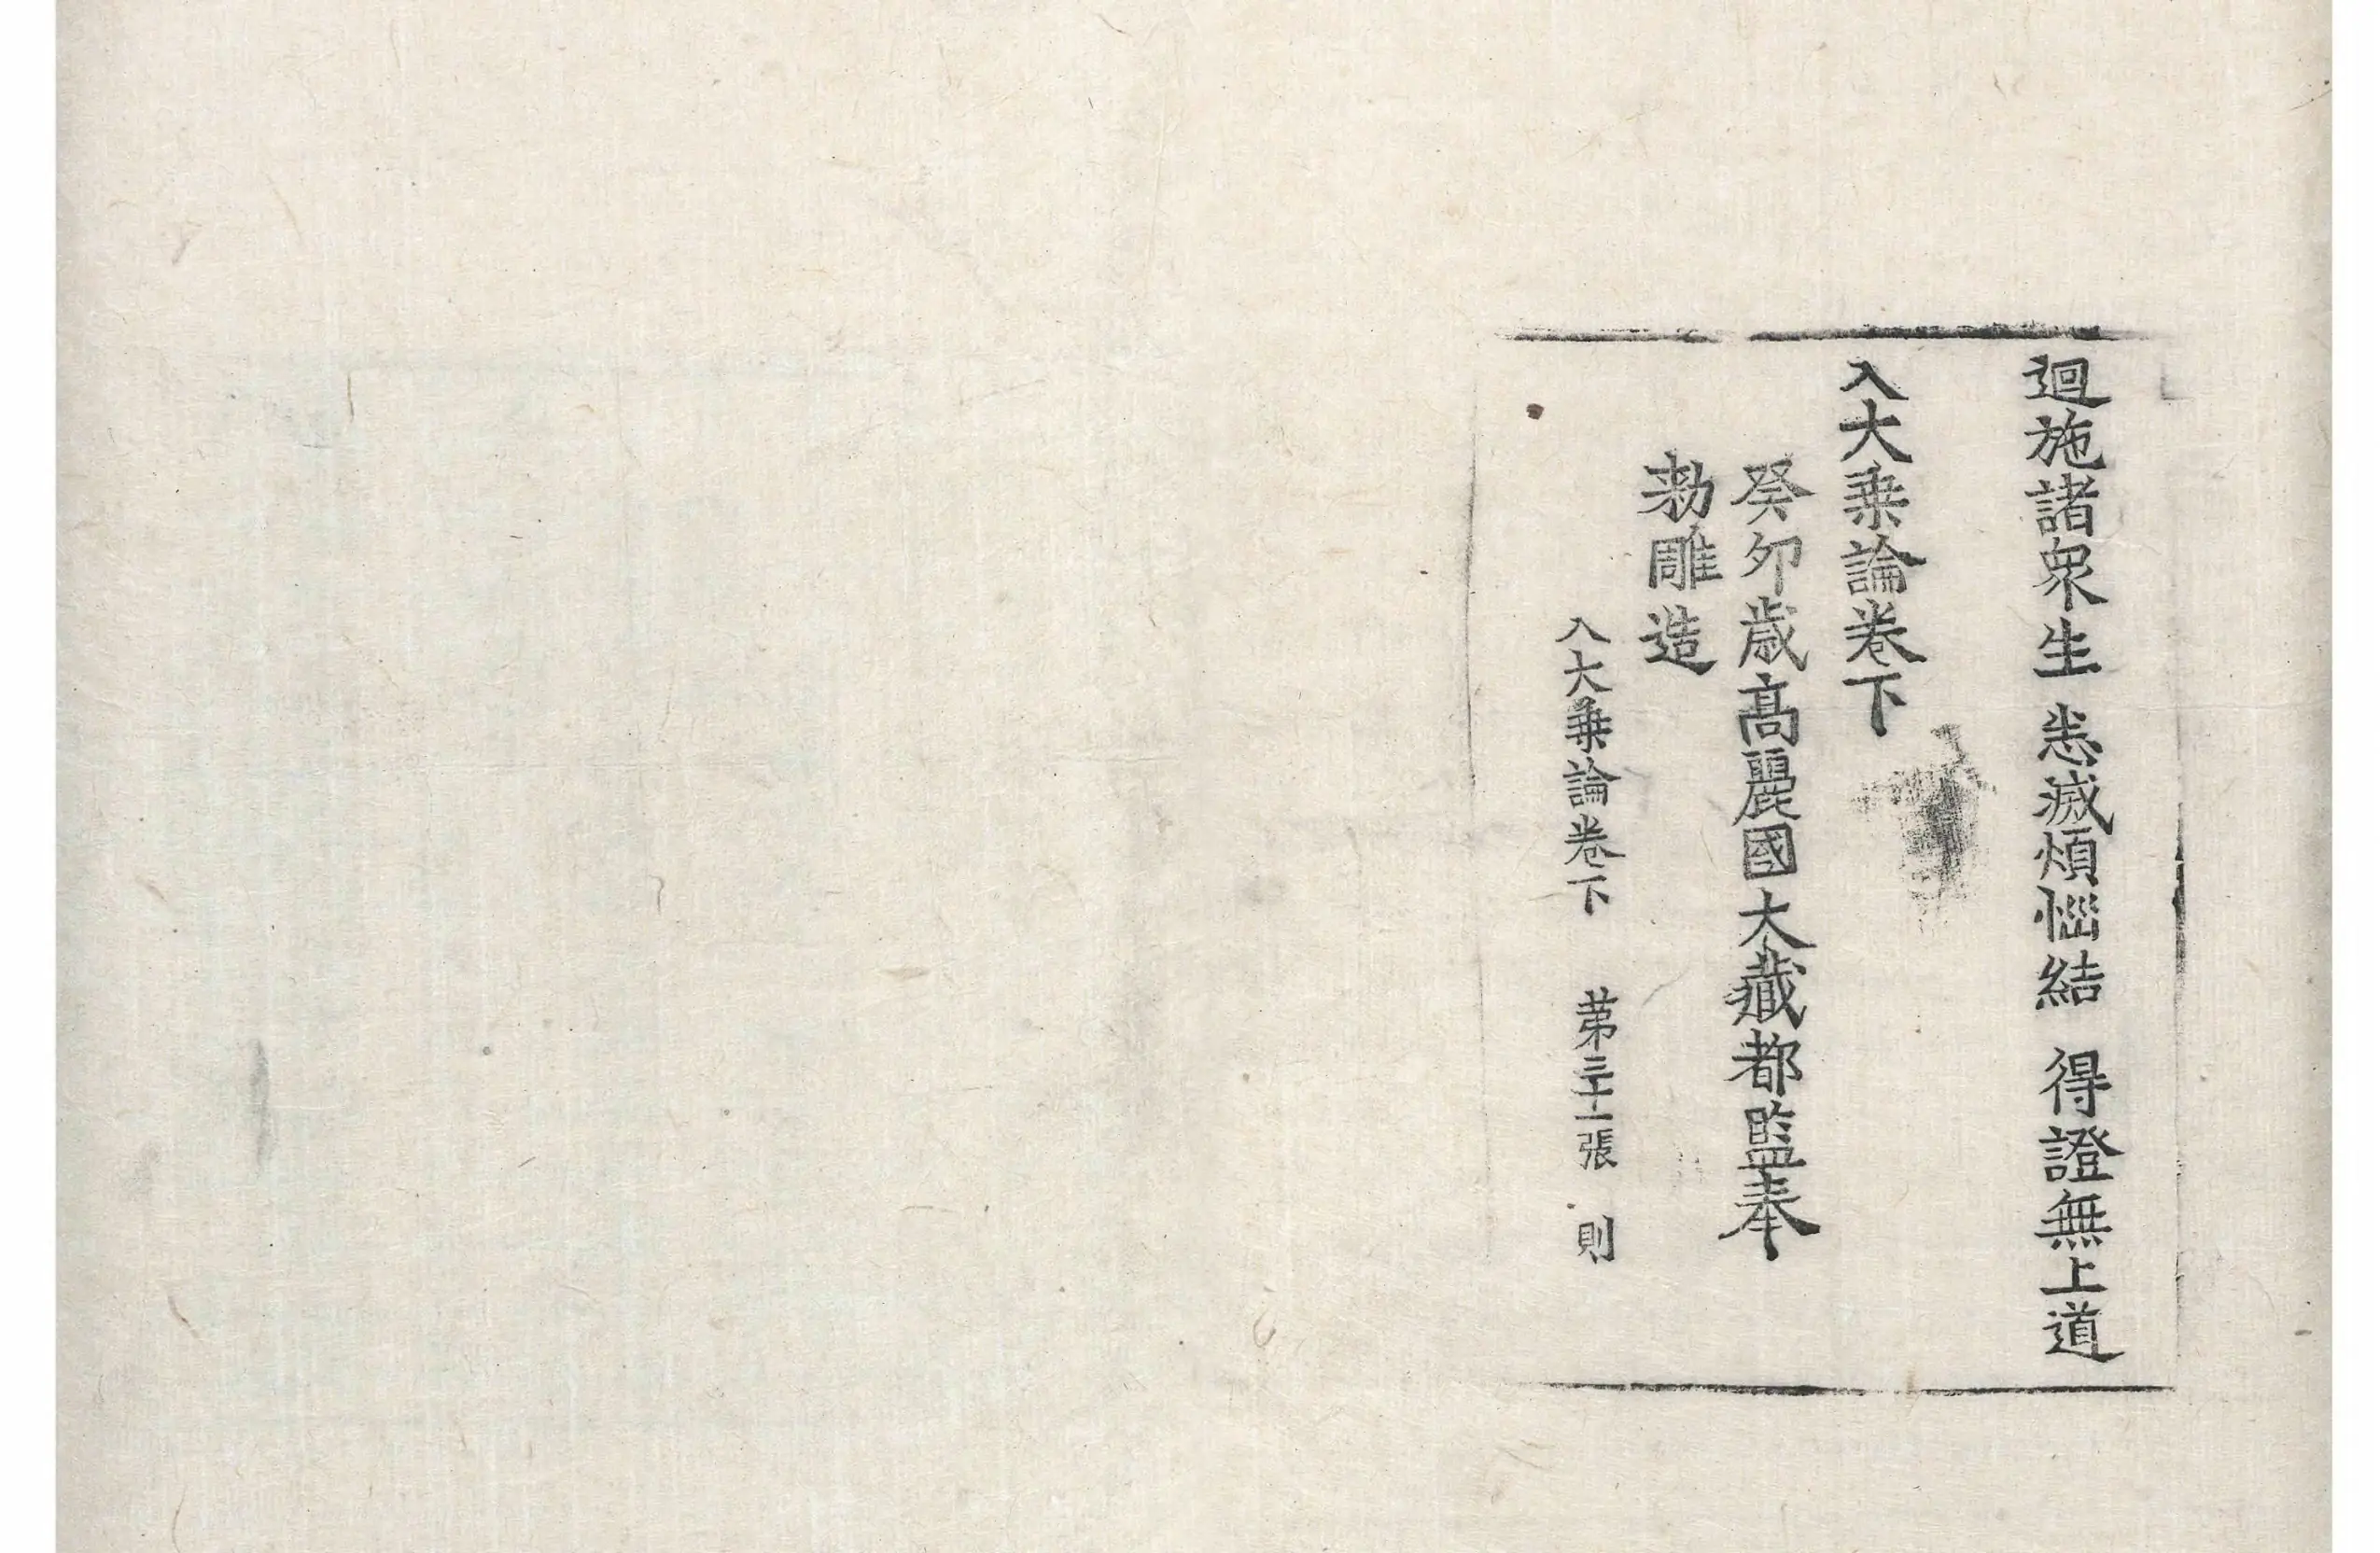 迴施諸衆生 悉滅煩惱結 得證無上道
入大乗論卷下
癸夘歲髙麗國大藏都監奉
勅雕造
入大乗論卷下 苐三十一張 則